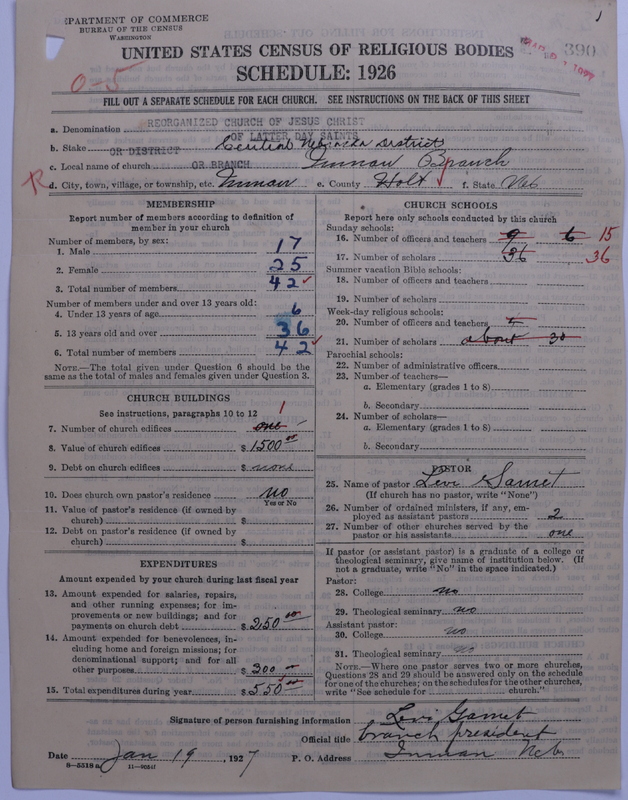 DEPARTMENT OF COMMERCE
BUREAU OF THE CENSUS
WASHINGTON
1
UNITED STATES CENSUS OF RELIGIOUS BODIES
390
SCHEDULE: 1926
0-5
FILL OUT A SEPARATE SCHEDULE FOR EACH CHURCH. SEE INSTRUCTIONS ON THE BACK OF THIS SHEET
a. Denomination REORGANIZED CHURCH OF JESUS CHRIST
OF LATTER DAY SAINTS
b. Stake OR DISTRICT Central Nebraska District
c. Local name of church OR BRANCH Inman Branch
R d. City, town, village, or township, etc. Inman e. County Holt f. State Neb
MEMBERSHIP
Report number of members according to definition of
member in your church
Number of members, by sex:
1. Male 17
2. Female 25
3. Total number of members 42
Number of members under and over 13 years old:
4. Under 13 years of age 6
5. 13 years old and over 36
6. Total number of members 42
NOTE.—The total given under Question 6 should be the
same as the total of males and females given under Question 3.
CHURCH BUILDINGS
See instructions, paragraphs 10 to 12
7. Number of church edifices one 1
8. Value of church edifices $ 1500 00
9. Debt on church edifices $ none
10. Does church own pastor's residence no
Yes or No
11. Value of pastor's residence (if owned by
church) $
12. Debt on pastor's residence (if owned by
church) $
EXPENDITURES
Amount expended by your church during last fiscal year
13. Amount expended for salaries, repairs,
and other running expenses; for im-
provements or new buildings; and for
payments on church debt $ 250 00
14. Amount expended for benevolences, in-
cluding home and foreign missions; for
denominational support; and for all
other purposes $ 300
15. Total expenditures during year $ 550 00
CHURCH SCHOOLS
Report here only schools conducted by this church
Sunday schools:
16. Number of officers and teachers 9 6 15
17. Number of scholars 36 36
Summer vacation Bible schools:
18. Number of officers and teachers
19. Number of scholars
Week-day religious schools:
20. Number of officers and teachers
21. Number of scholars about 30
Parochial schools:
22. Number of administrative officers
23. Number of teachers—
a. Elementary (grades 1 to 8)
b. Secondary
24. Number of scholars—
a. Elementary (grades 1 to 8)
b. Secondary
PASTOR
25. Name of pastor Levi Gamet
(If church has no pastor, write "None")
26. Number of ordained ministers, if any, em-
ployed as assistant pastors 2
27. Number of other churches served by the
pastor or his assistants one
If pastor (or assistant pastor) is a graduate of a college or
theological seminary, give name of institution below. (If
not a graduate, write "No" in the space indicated.)
Pastor:
28. College no
29. Theological seminary no
Assistant pastor:
30. College no
31. Theological seminary no
NOTE.—Where one pastor serves two or more churches,
Questions 28 and 29 should be answered only on the schedule
for one of the churches; on the schedules for the other churches,
write "See schedule for church."
Signature of person furnishing information Levi Gamet
Official title branch president
Date Jan 19, 1927 P. O. Address Inman Neb
8-5518 a 11-9051f